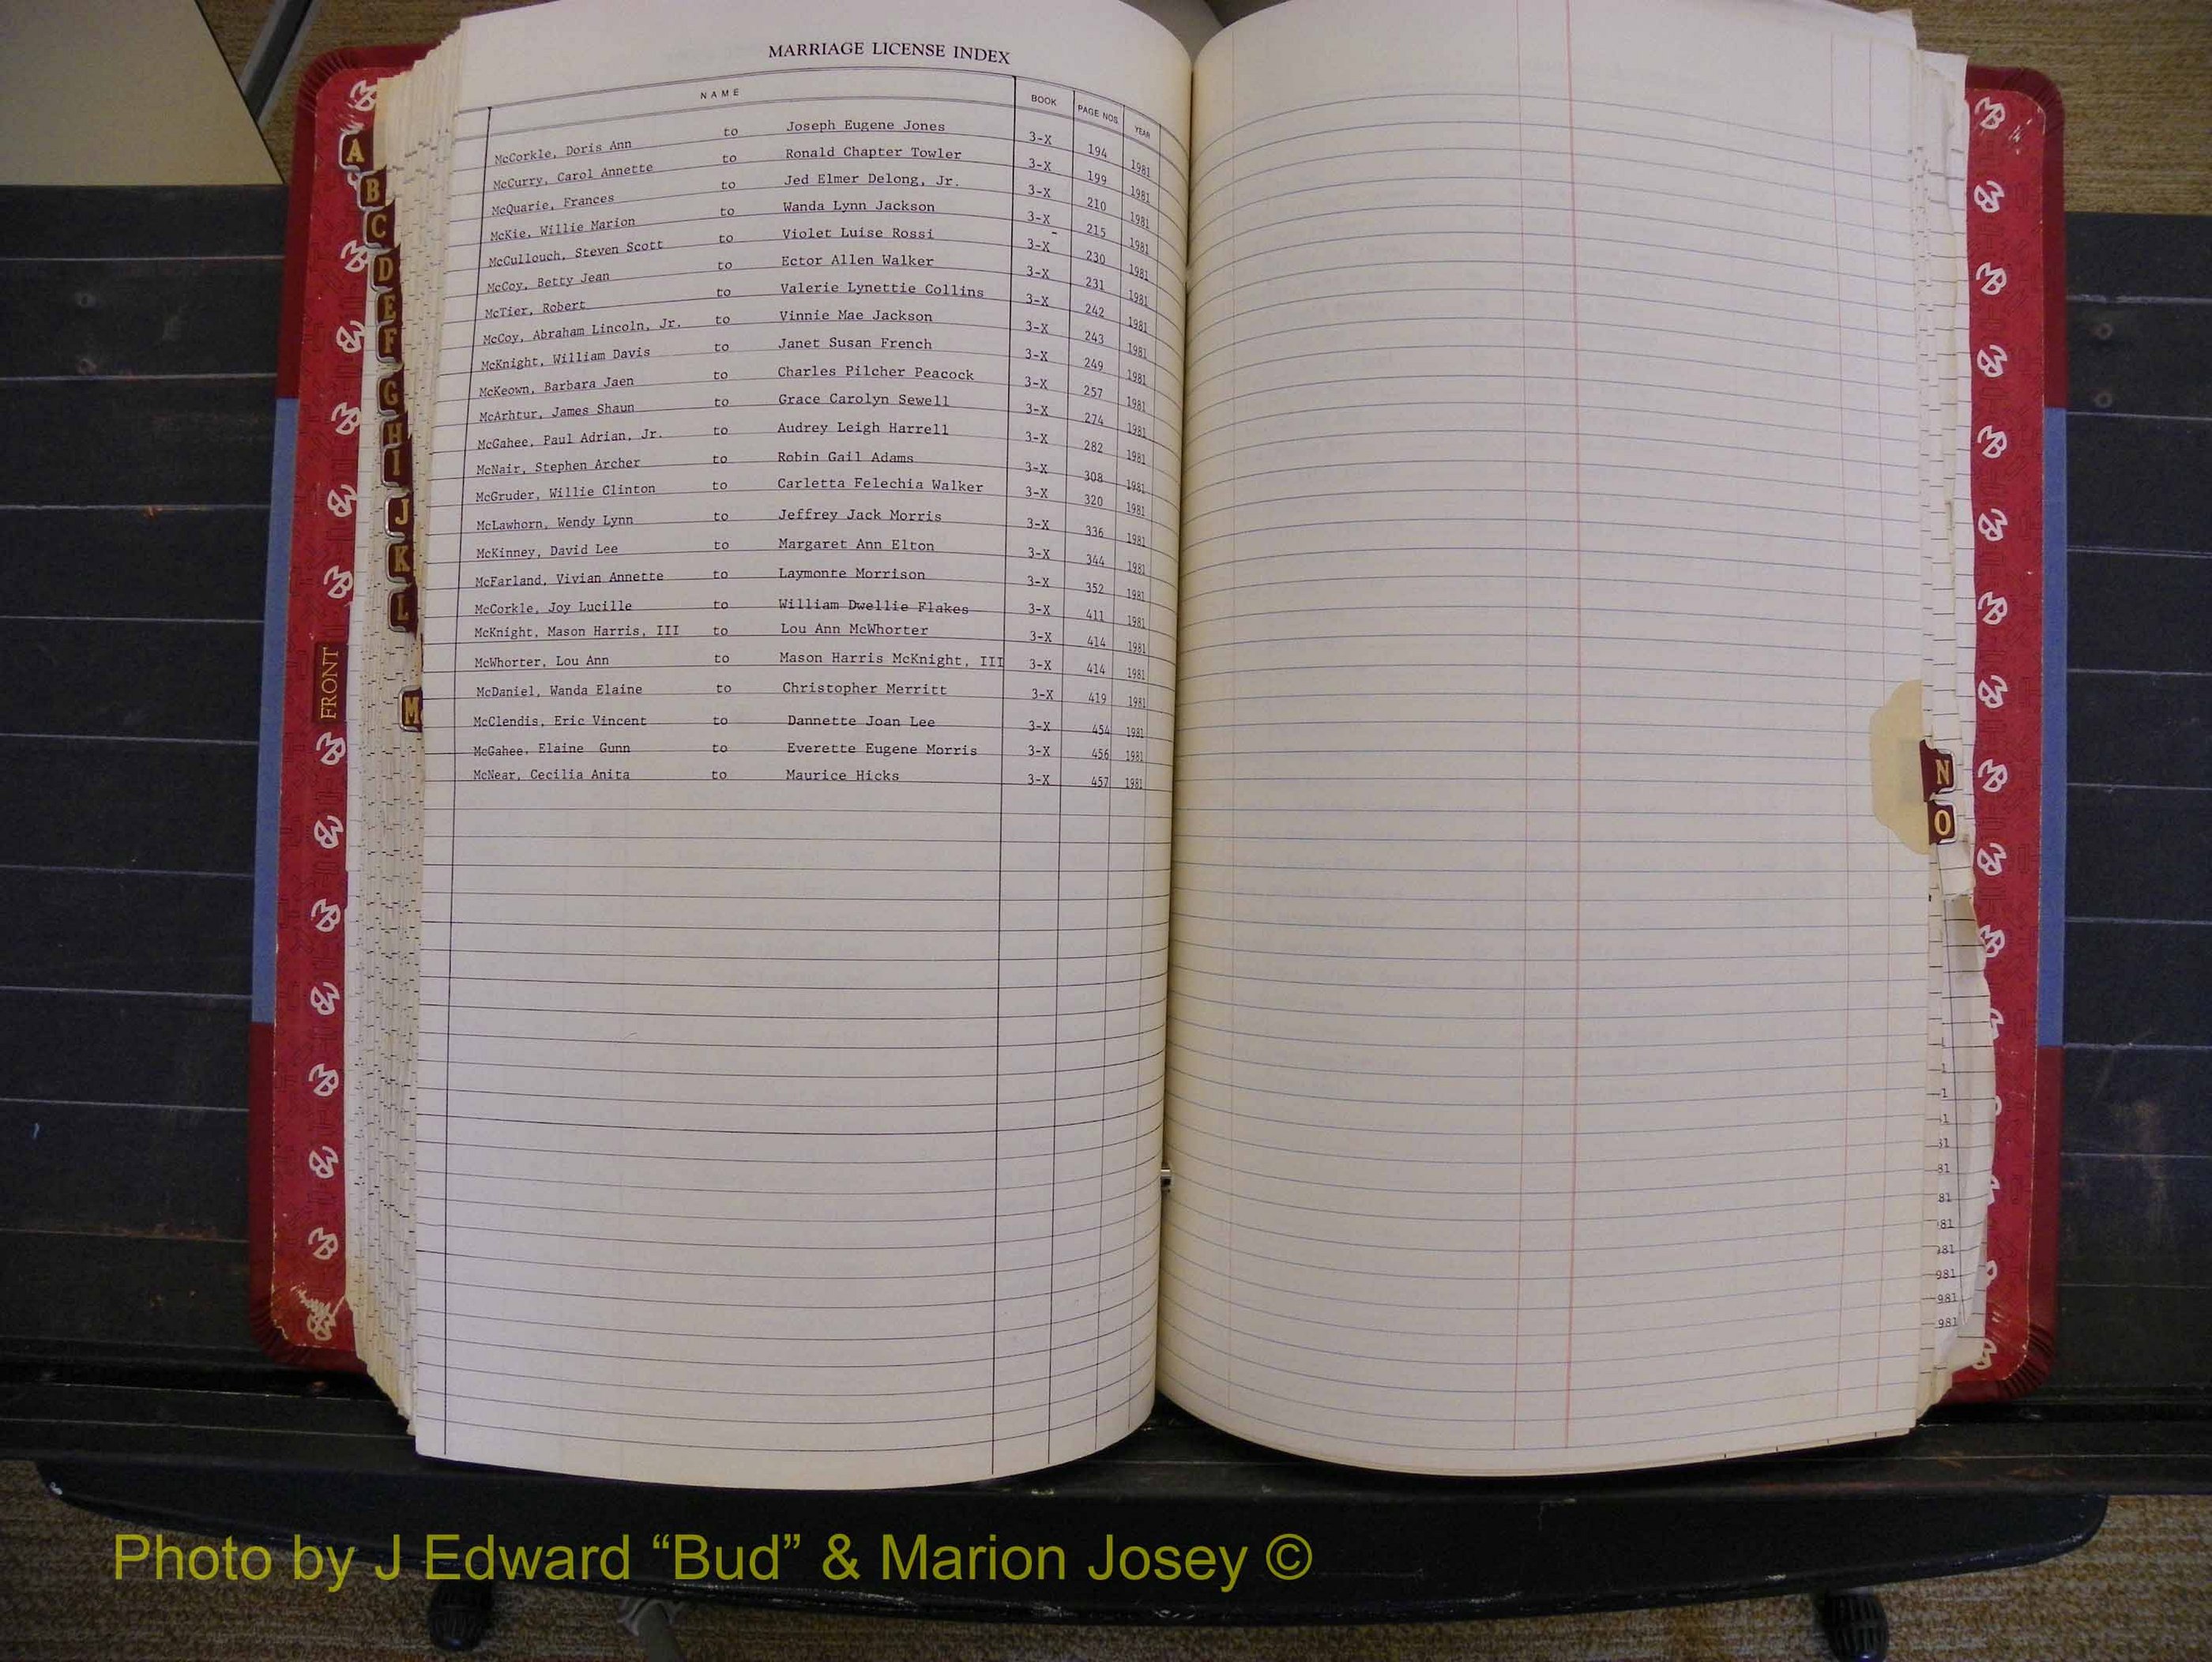 MARRIAGE LICENSE INDEX
NAME BOOK PAGE NOS. YEAR
McCorkle, Doris Ann to Joseph Eugene Jones 3-X 194 1981
McCurry, Carol Annette to Ronald Chapter Towler 3-X 199 1981
McQuarie, Frances to Jed Elmer Delong, Jr. 3-X 210 1981
McKie, Willie Marion to Wanda Lynn Jackson 3-X 215 1981
McCullouch, Steven Scott to Violet Luise Rossi 3-X 230 1981
McCoy, Betty Jean to Ector Allen Walker 3-X 231 1981
McTier, Robert to Valerie Lynettie Collins 3-X 242 1981
McCoy, Abraham Lincoln, Jr. to Vinnie Mae Jackson 3-X 243 1981
McKnight, William Davis to Janet Susan French 3-X 249 1981
McKeown, Barbara Jaen to Charles Pilcher Peacock 3-X 257 1981
McArhtur, James Shaun to Grace Carolyn Sewell 3-X 274 1981
McGahee, Paul Adrian, Jr. to Audrey Leigh Harrell 3-X 282 1981
McNair, Stephen Archer to Robin Gail Adams 3-X 308 1981
McGruder, Willie Clinton to Carletta Felechia Walker 3-X 320 1981
McLawhorn, Wendy Lynn to Jeffrey Jack Morris 3-X 336 1981
McKinney, David Lee to Margaret Ann Elton 3-X 344 1981
McFarland, Vivian Annette to Laymonte Morrison 3-X 352 1981
McCorkle, Joy Lucille to William Dwellie Flakes 3-X 411 1981
McKnight, Mason Harris, III to Lou Ann McWhorter 3-X 414 1981
McWhorter, Lou Ann to Mason Harris McKnight, III 3-X 414 1981
McDaniel, Wanda Elaine to Christopher Merritt 3-X 419 1981
McClendis, Eric Vincent to Dannette Joan Lee 3-X 454 1981
McGahee, Elaine Gunn to Everette Eugene Morris 3-X 456 1981
McNear, Cecilia Anita to Maurice Hicks 3-X 457 1981
A
B
C
D
E
F
G
H
I
J
K
L
FRONT
M
N
O
1
1
1
81
81
81
81
81
981
981
981
Photo by J Edward “Bud” & Marion Josey ©